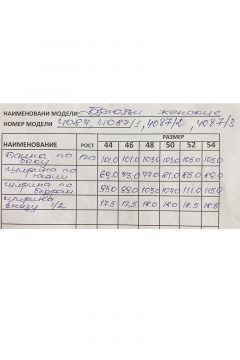 НАИМЕНОВАНИ МОДЕЛИ Брюки женские
НОМЕР МОДЕЛИ 4087, 4087/1, 4087/2, 4087/3
РАЗМЕР
НАИМЕНОВАНИЕ РОСТ 44 46 48 50 52 54
Длина по боку 170 101.0 101.0 103.0 103.0 105.0 105.0
ширина по талии 69.0 73.0 77.0 81.0 85.0 89.0
ширина по бедрам 95.0 99.0 103.0 107.0 111.0 115.0
ширина внизу 1/2 17.5 17.5 18.0 18.0 18.5 18.5